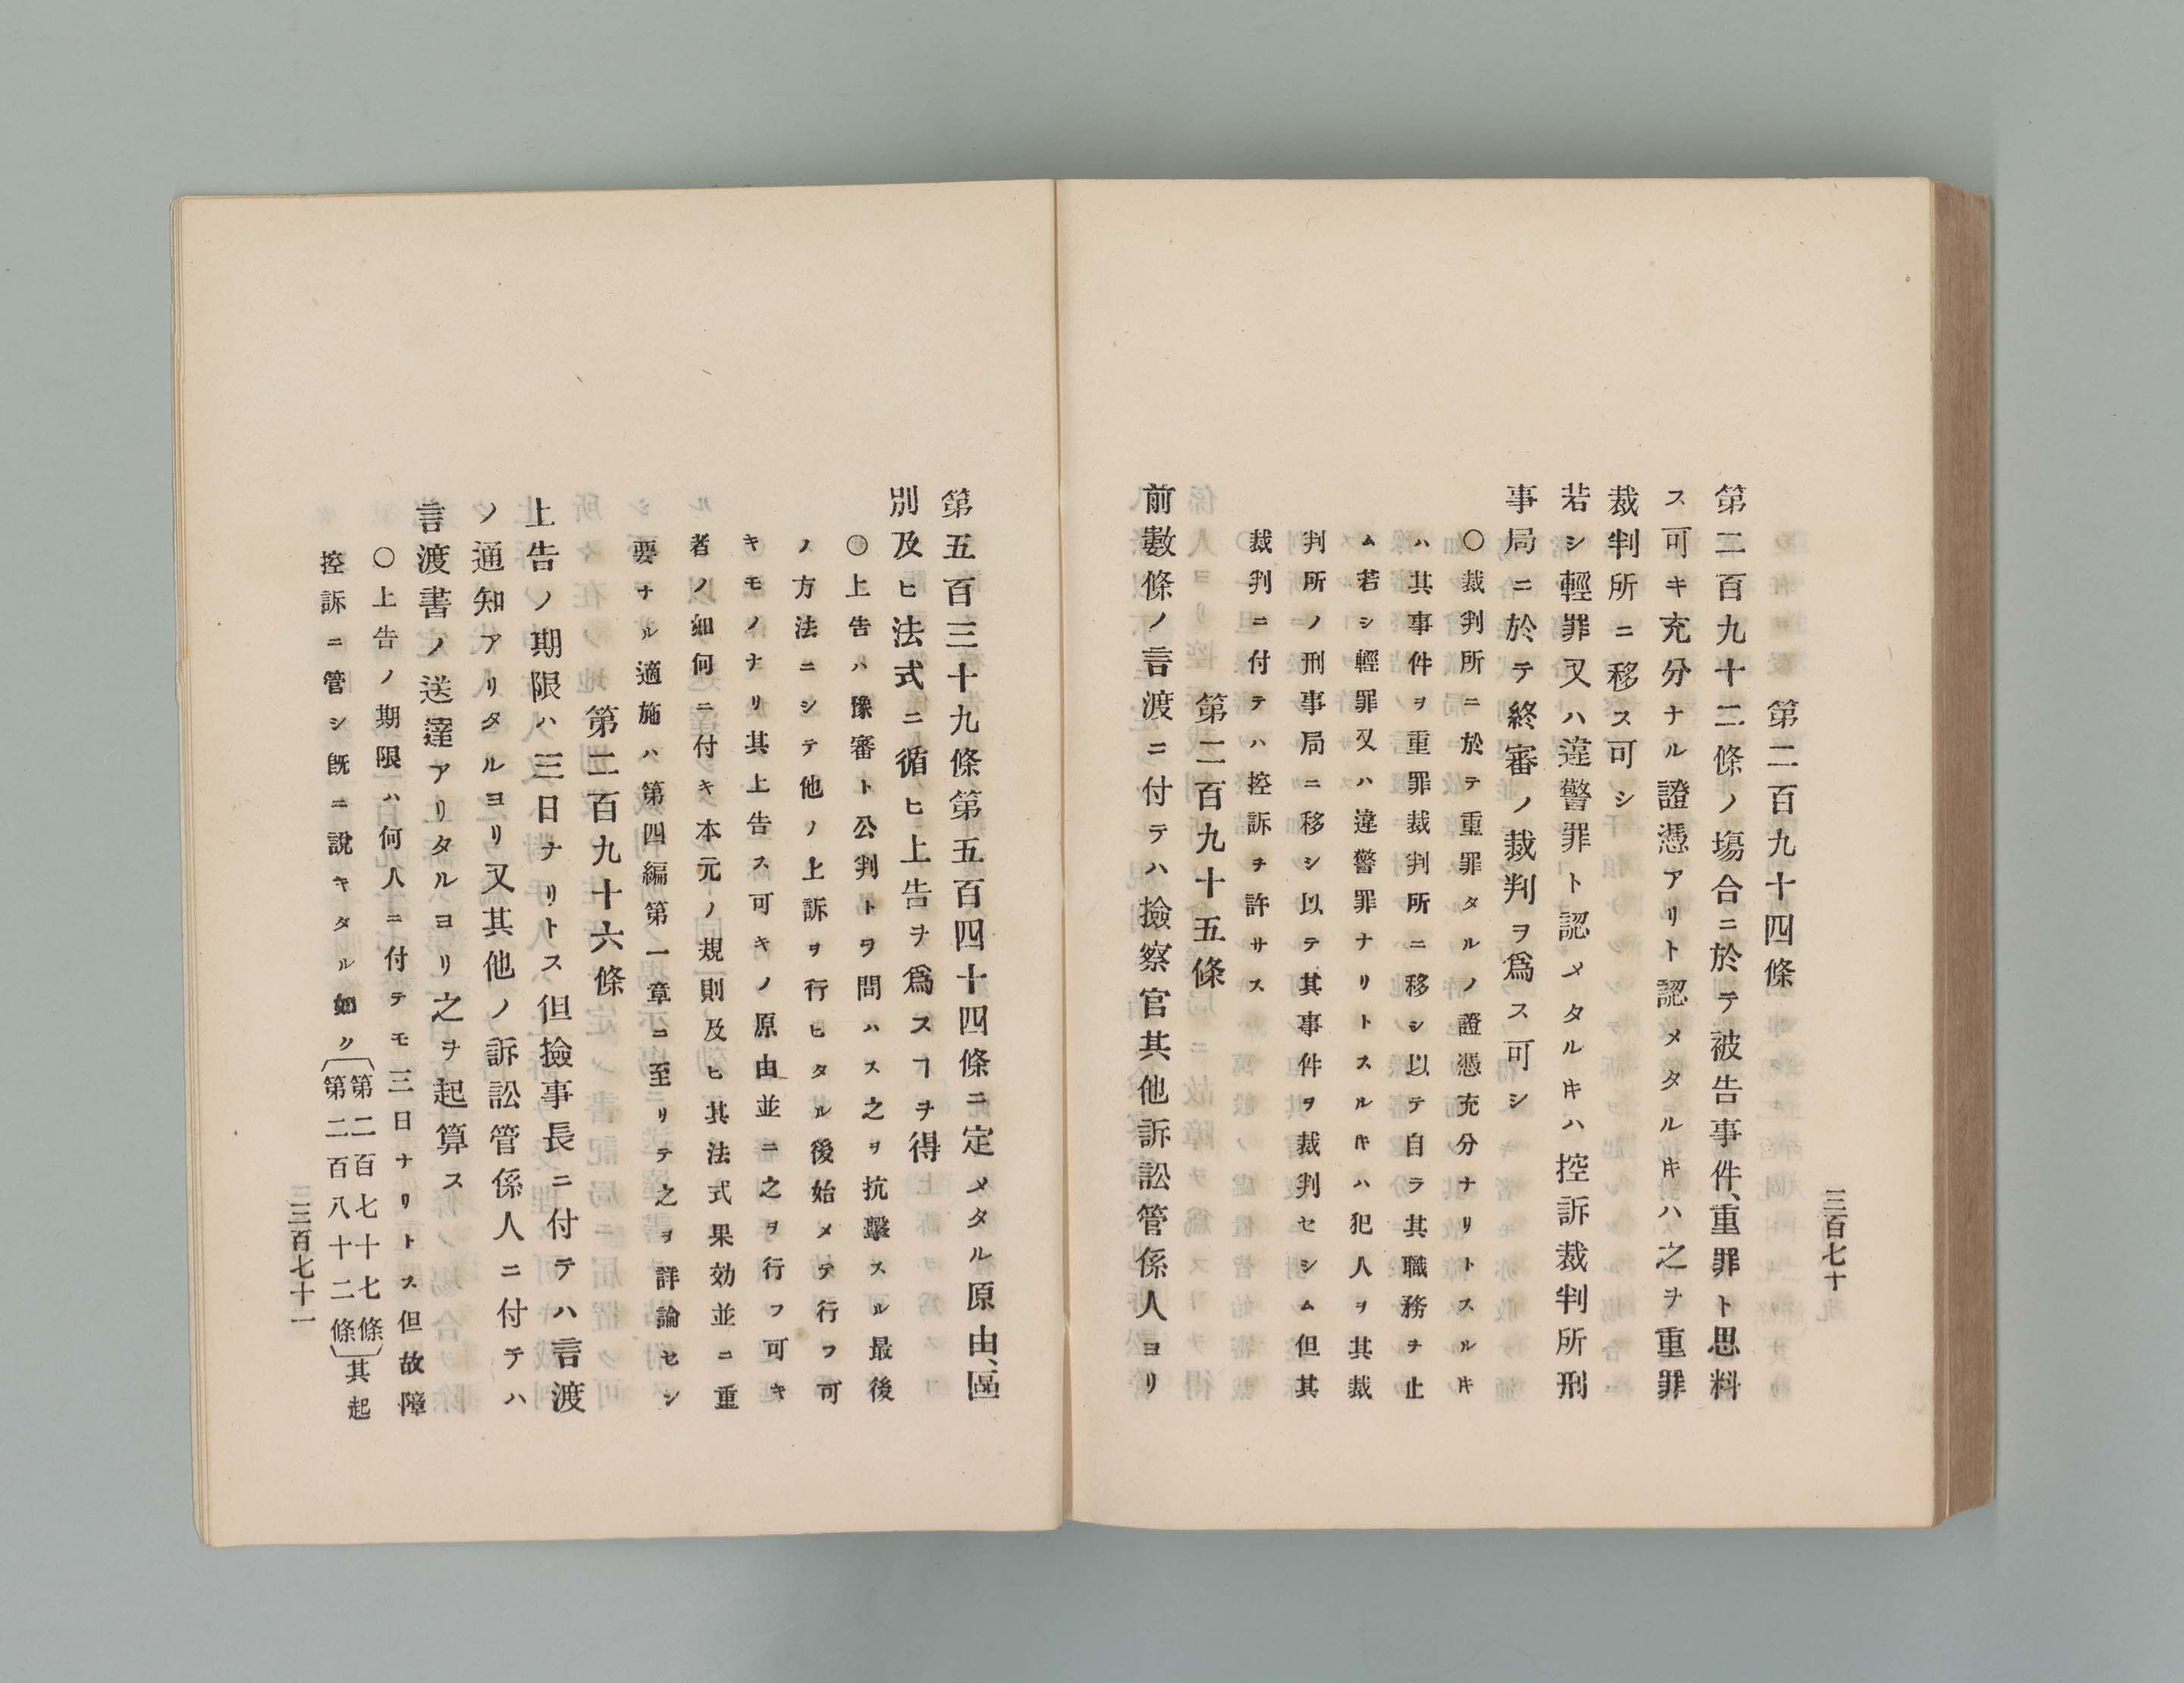 三百七十
第二百九十四條
第二百九十二條ノ塲合ニ於テ被告事件、重罪ト思料
ス可キ充分ナル證憑アリト認メタルキハ之ヲ重罪
裁判所ニ移ス可シ
若シ輕罪又ハ違警罪ト認メタルキハ控訴裁判所刑
事局ニ於テ終審ノ裁判ヲ爲ス可シ
〇裁判所ニ於テ重罪タルノ證憑充分ナリトスルキ
ハ其事件ヲ重罪裁判所ニ移シ以テ自ラ其職務ヲ止
ム若シ輕罪又ハ違警罪ナリトスルキハ犯人ヲ其裁
判所ノ刑事局ニ移シ以テ其事件ヲ裁判セシム但其
裁判ニ付テハ控訴ヲ許サス
第二百九十五條
前數條ノ言渡ニ付テハ撿察官其他訴訟管係人ヨリ
第五百三十九條第五百四十四條ニ定メタル原由、區
別及ヒ法式ニ循ヒ上告ヲ爲スヿヲ得
〇上告ハ豫審ト公判トヲ問ハス之ヲ抗擊スル最後
ノ方法ニシテ他ノ上訴ヲ行ヒタル後始メテ行フ可
キモノナリ其上告ス可キノ原由並ニ之ヲ行フ可キ
者ノ如何ニ付キ本元ノ規則及ヒ其法式果効並ニ重
要ナル適施ハ第四編第一章ニ至リテ之ヲ詳論セン
第二百九十六條
上告ノ期限ハ三日ナリトス但撿事長ニ付テハ言渡
ノ通知アリタルヨリ又其他ノ訴訟管係人ニ付テハ
言渡書ノ送達アリタルヨリ之ヲ起算ス
〇上告ノ期限ハ何人ニ付テモ三日ナリトス但故障
控訴ニ管シ既ニ說キタル如ク〔第二百七十七條第二百八十二條〕其起
三百七十一